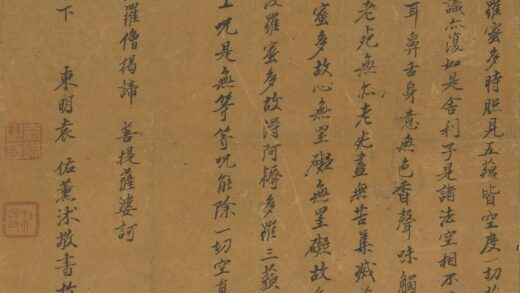 羅蜜多時照見五蘊皆空度一切
識亦復如是舍利子是諸法空相不
耳鼻舌身意無色香聲味觸
老死無亦老死盡無苦集滅
蜜多故心無罣礙無罣礙故
波羅蜜多故得阿耨多羅三藐
上呪是無等等呪能除一切
羅僧揭諦 菩提薩婆訶
東明袁 佑薰沐敬書於
下